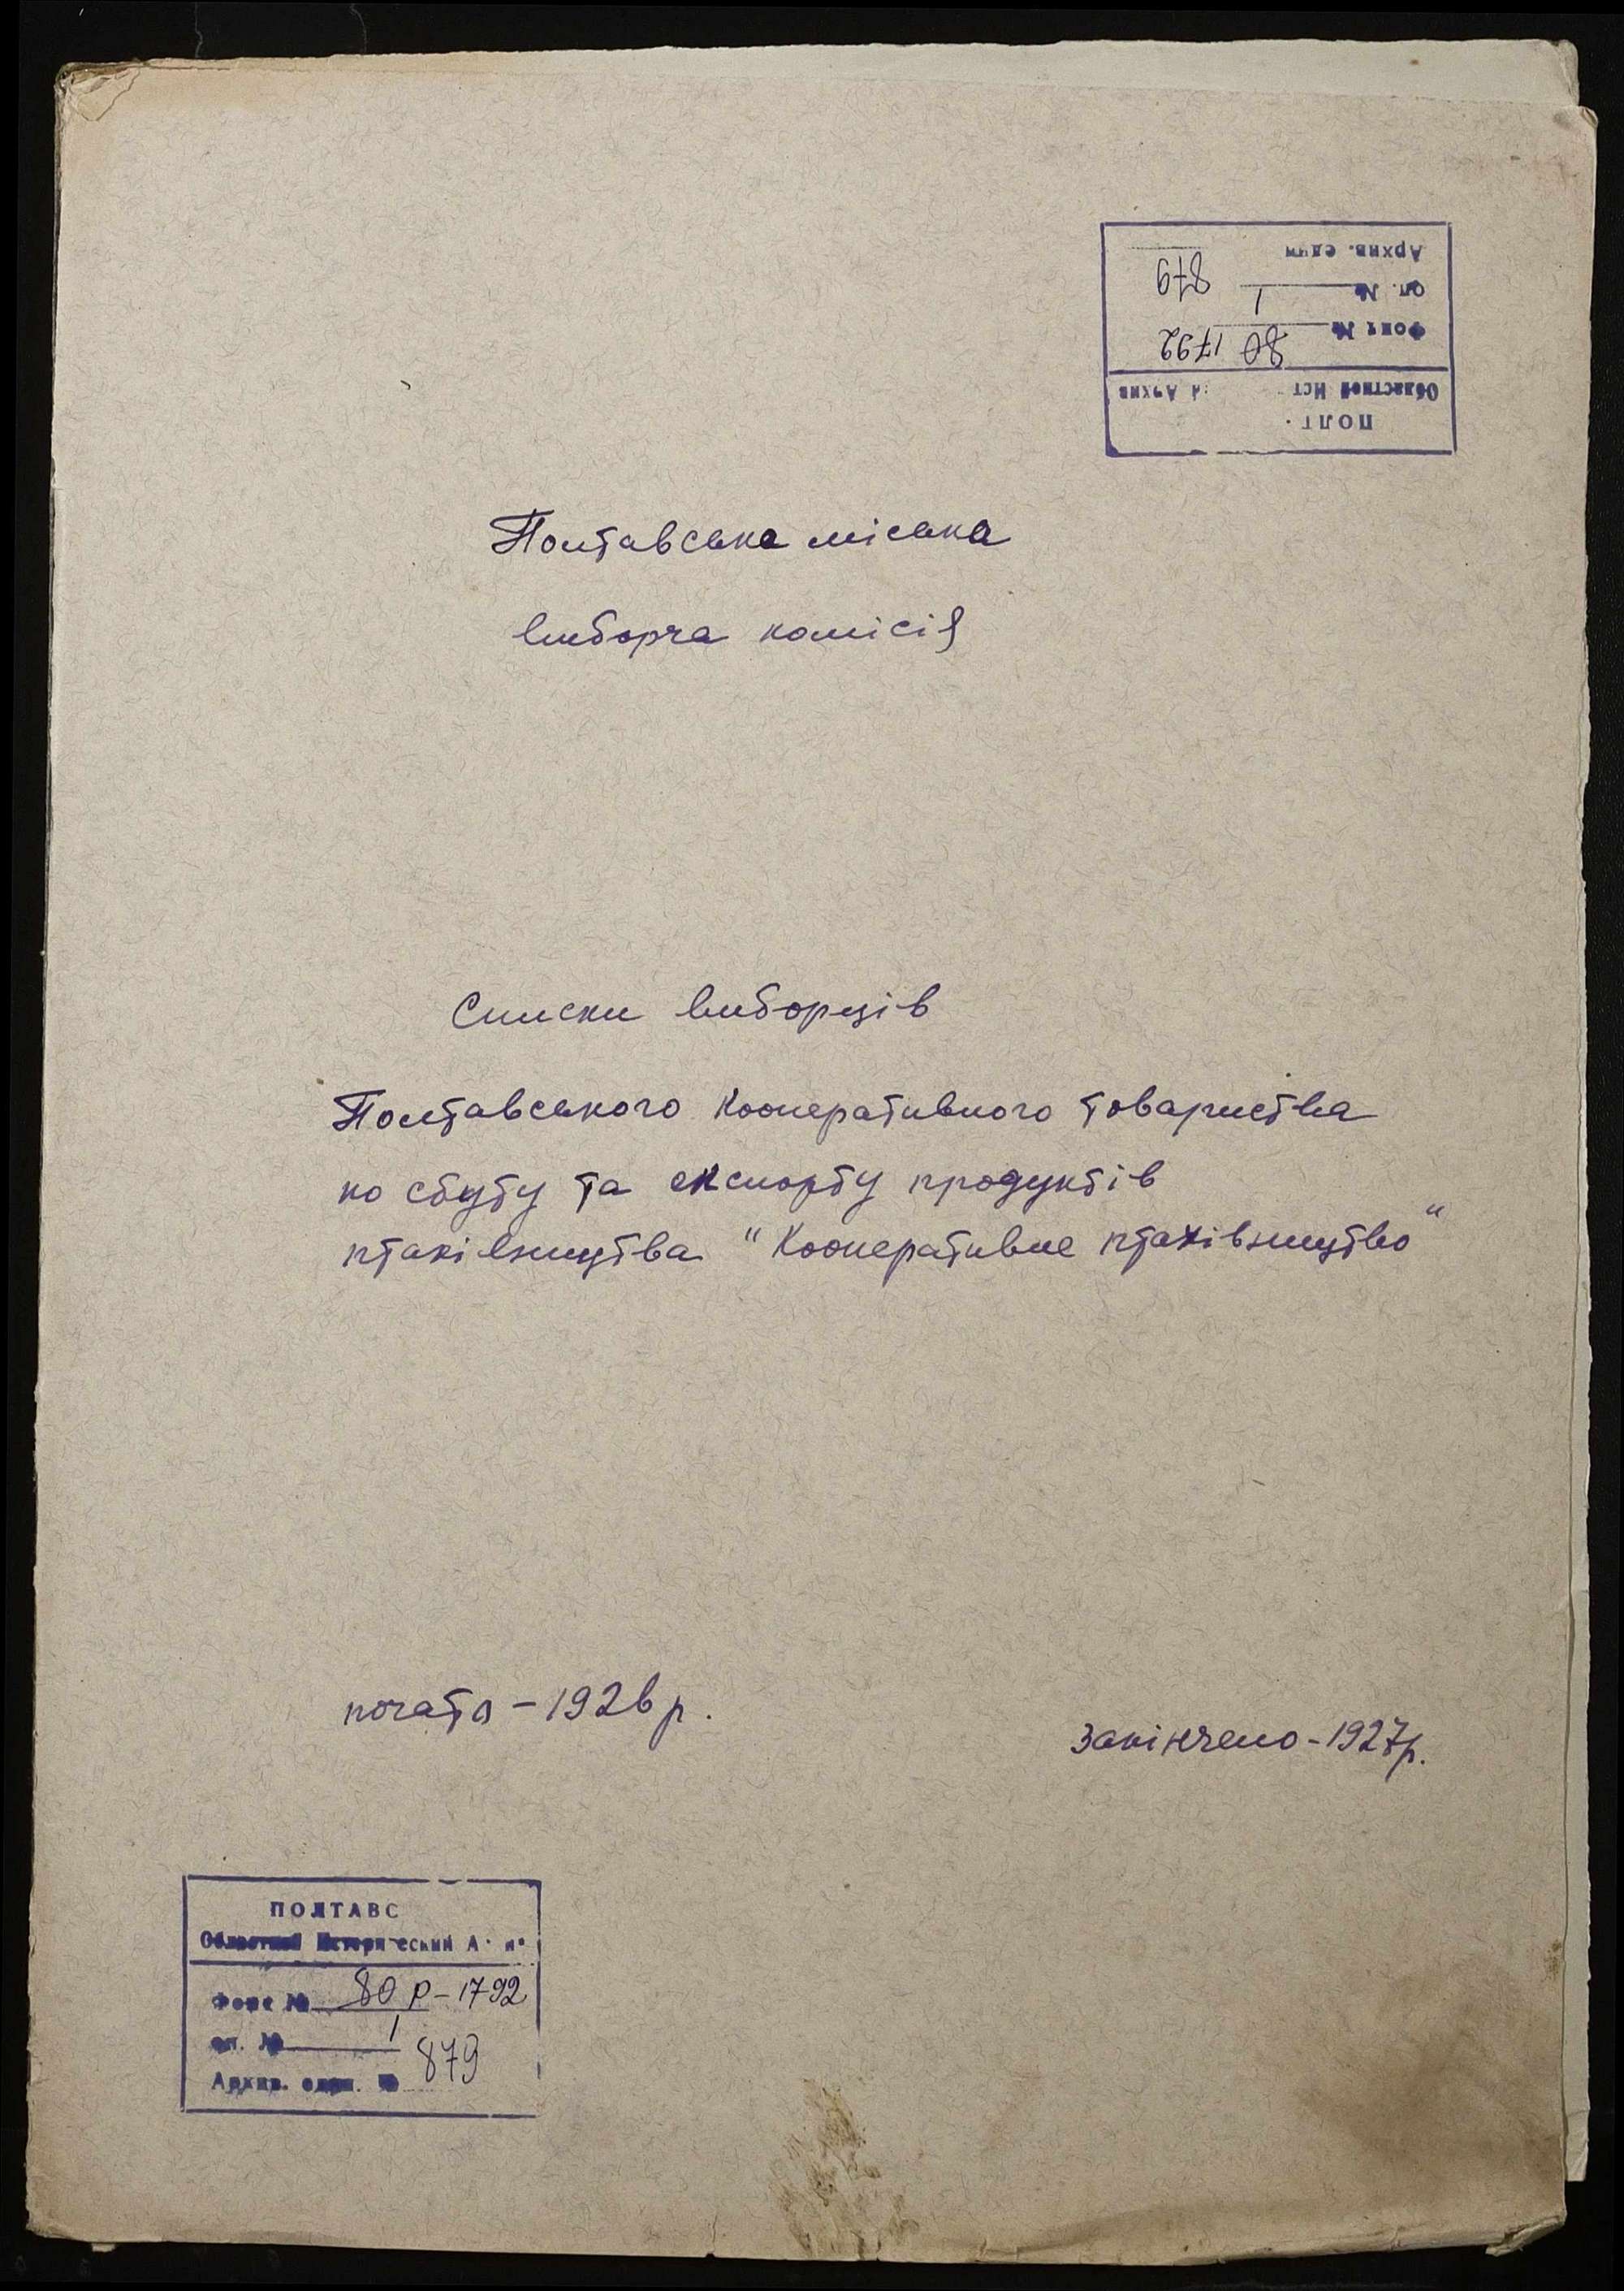 ПОЛТ
Областной Ист й Архив
Фонд № 80 1792
оп. № 1
Архив. един 879
Полтавська міська
виборча комісія
Списки виборців
Полтавського кооперативного товариства
по сбуту та експорту продуктів
птахівництва "Кооперативне птахівництво"
почато - 1926 р.
закінчено - 1927р.
ПОЛТАВС
Областной Исторический А
Фонд № 80 р - 1792
оп. № 1
Архив. един. № 879